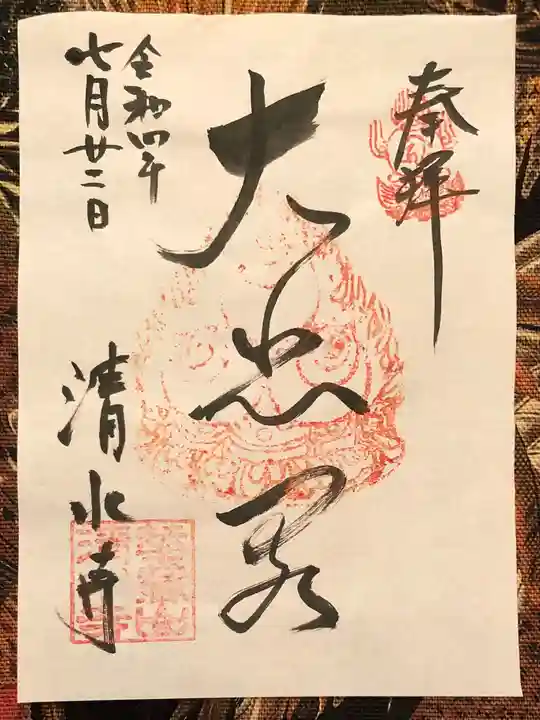 奉拝
大悲閣
令和四年
七月廿二日
清水寺